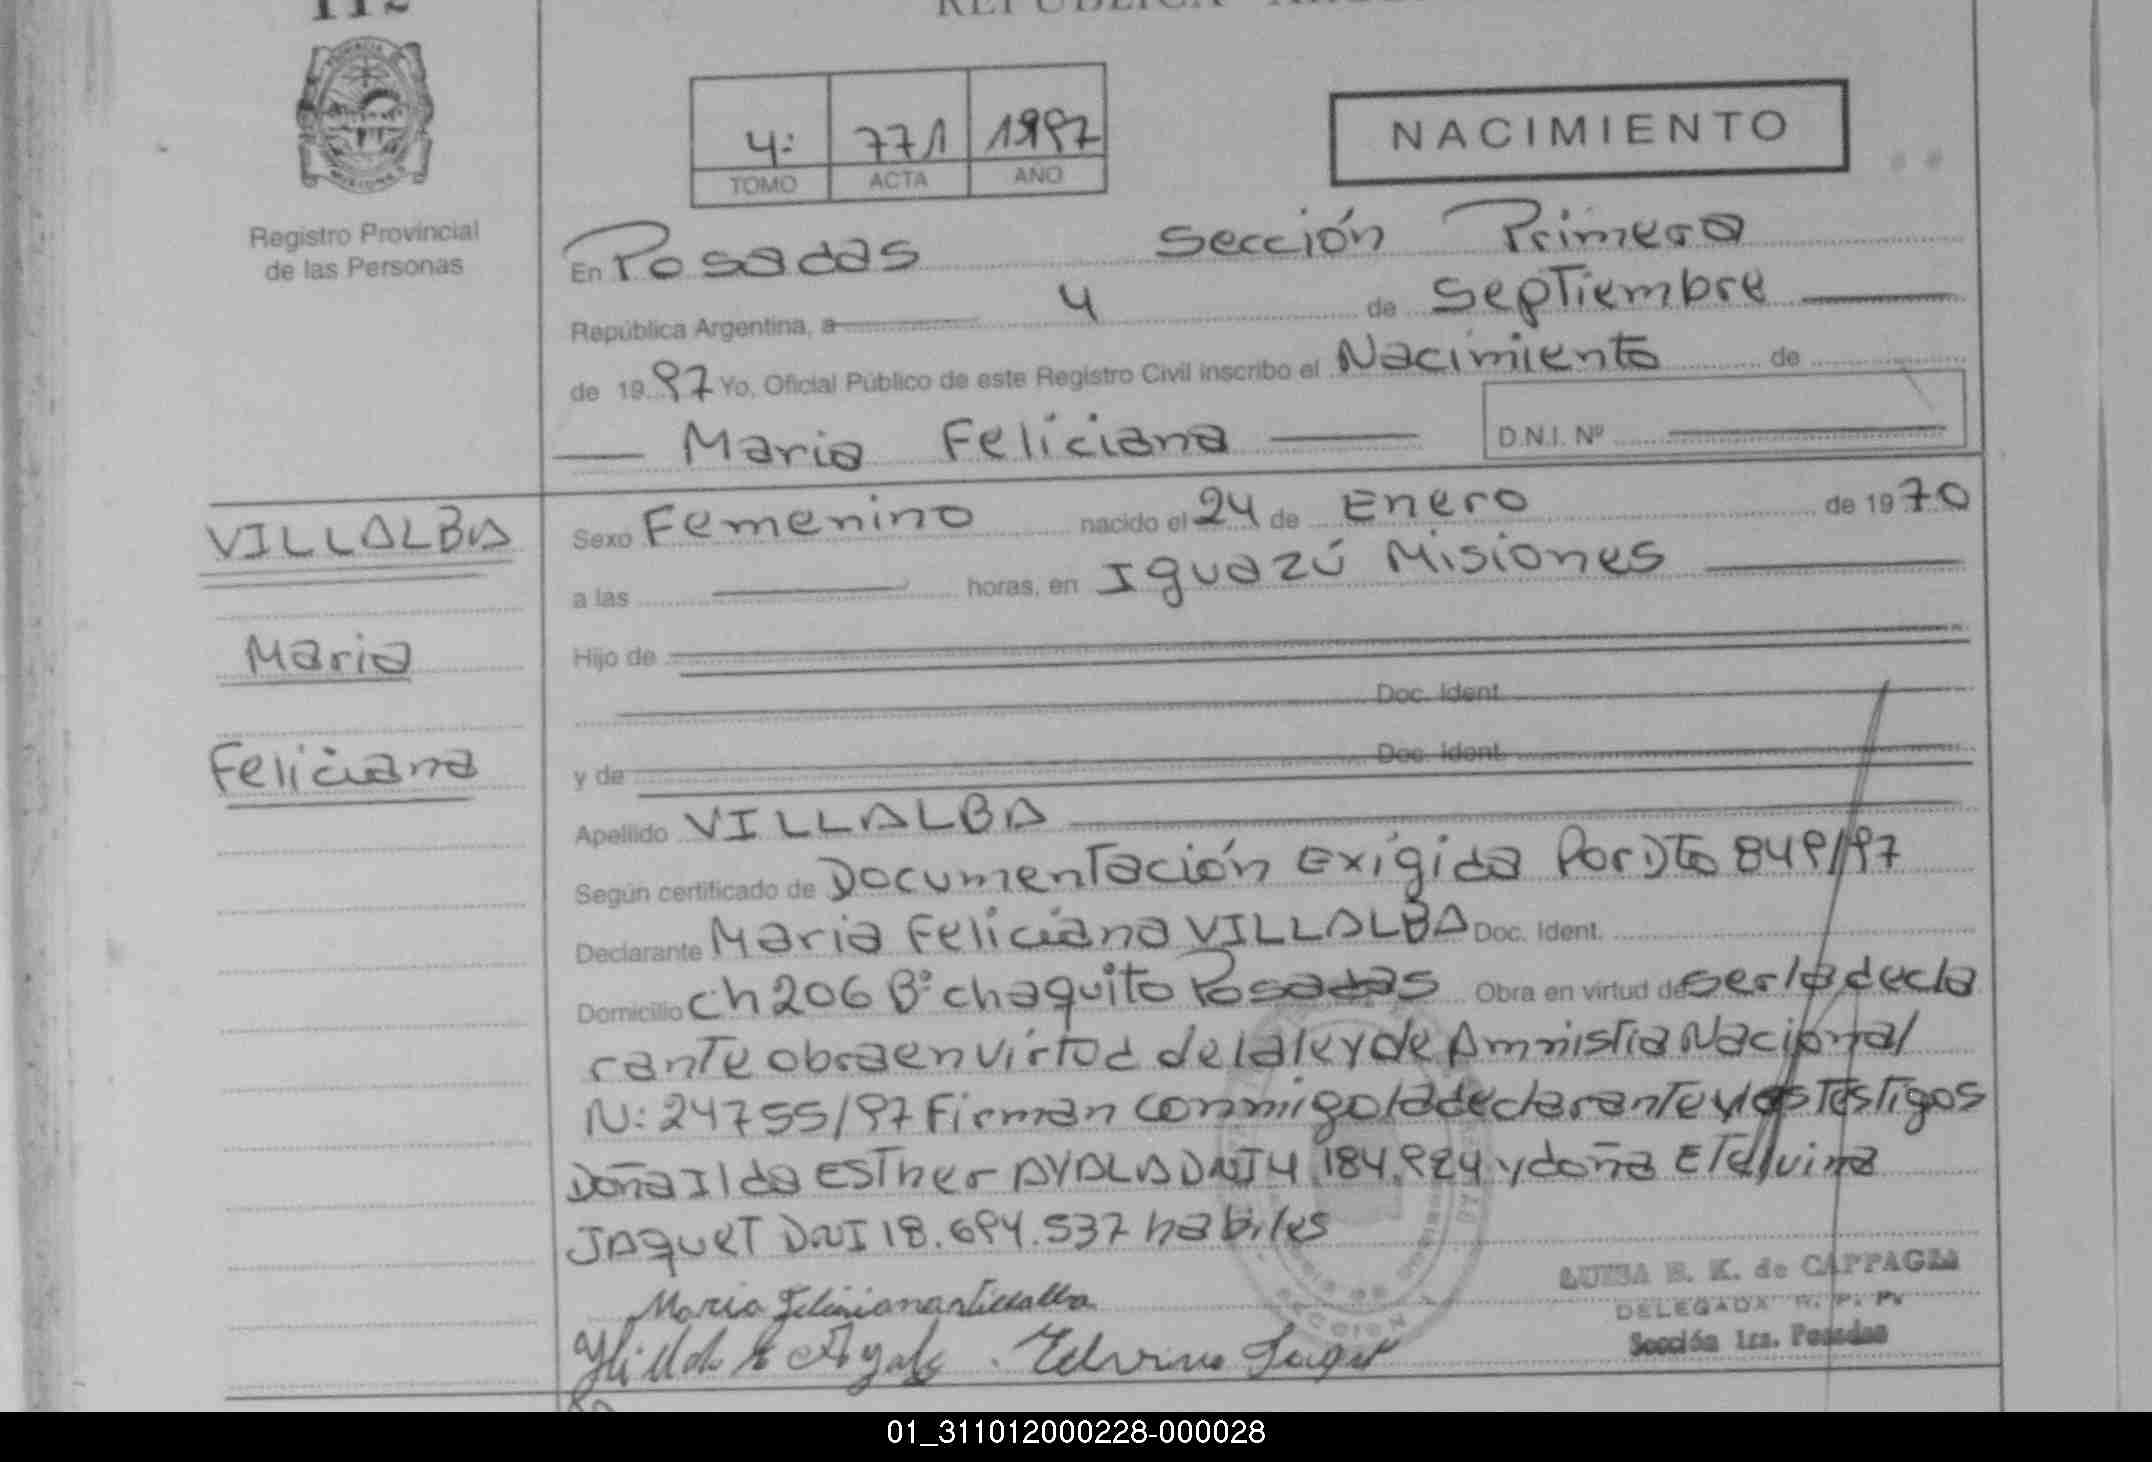 112
REPUBLICA
4: 771 1997
TOMO ACTA AÑO
NACIMIENTO
Registro Provincial
de las Personas
En Posadas Sección Primera
República Argentina, a 4 de Septiembre
de 1997 Yo, Oficial Público de este Registro Civil inscribo el Nacimiento de
Maria Feliciana D.N.I. Nº
VILLALBA
Maria
Feliciana
Sexo Femenino nacido el 24 de Enero de 1970
a las horas, en Iguazú Misiones
Hijo de
Doc. Ident.
y de Doc. Ident.
Apellido VILLALBA
Según certificado de Documentación Exigida Por Dto 849/97
Declarante Maria Feliciana VILLALBA Doc. Ident.
Domicilio ch 206 Bº chaquito Posadas Obra en virtud de ser la decla
rante obra en virtud de la ley de Amnistia Nacional
N: 24755/97 Firman conmigo la declarante y los Testigos
Doña Ilda Esther AYALA DNI 4.184.924 y doña Etelvina
JAQUET DNI 18.694.537 habiles
Maria Feliciana Villalba
Ayala Etelvina Jaquet
LUISA B. K. de CAPPAGLI
DELEGADA R. P. P.
Sección 1ra. Posadas
SECCION 1
01_311012000228-000028